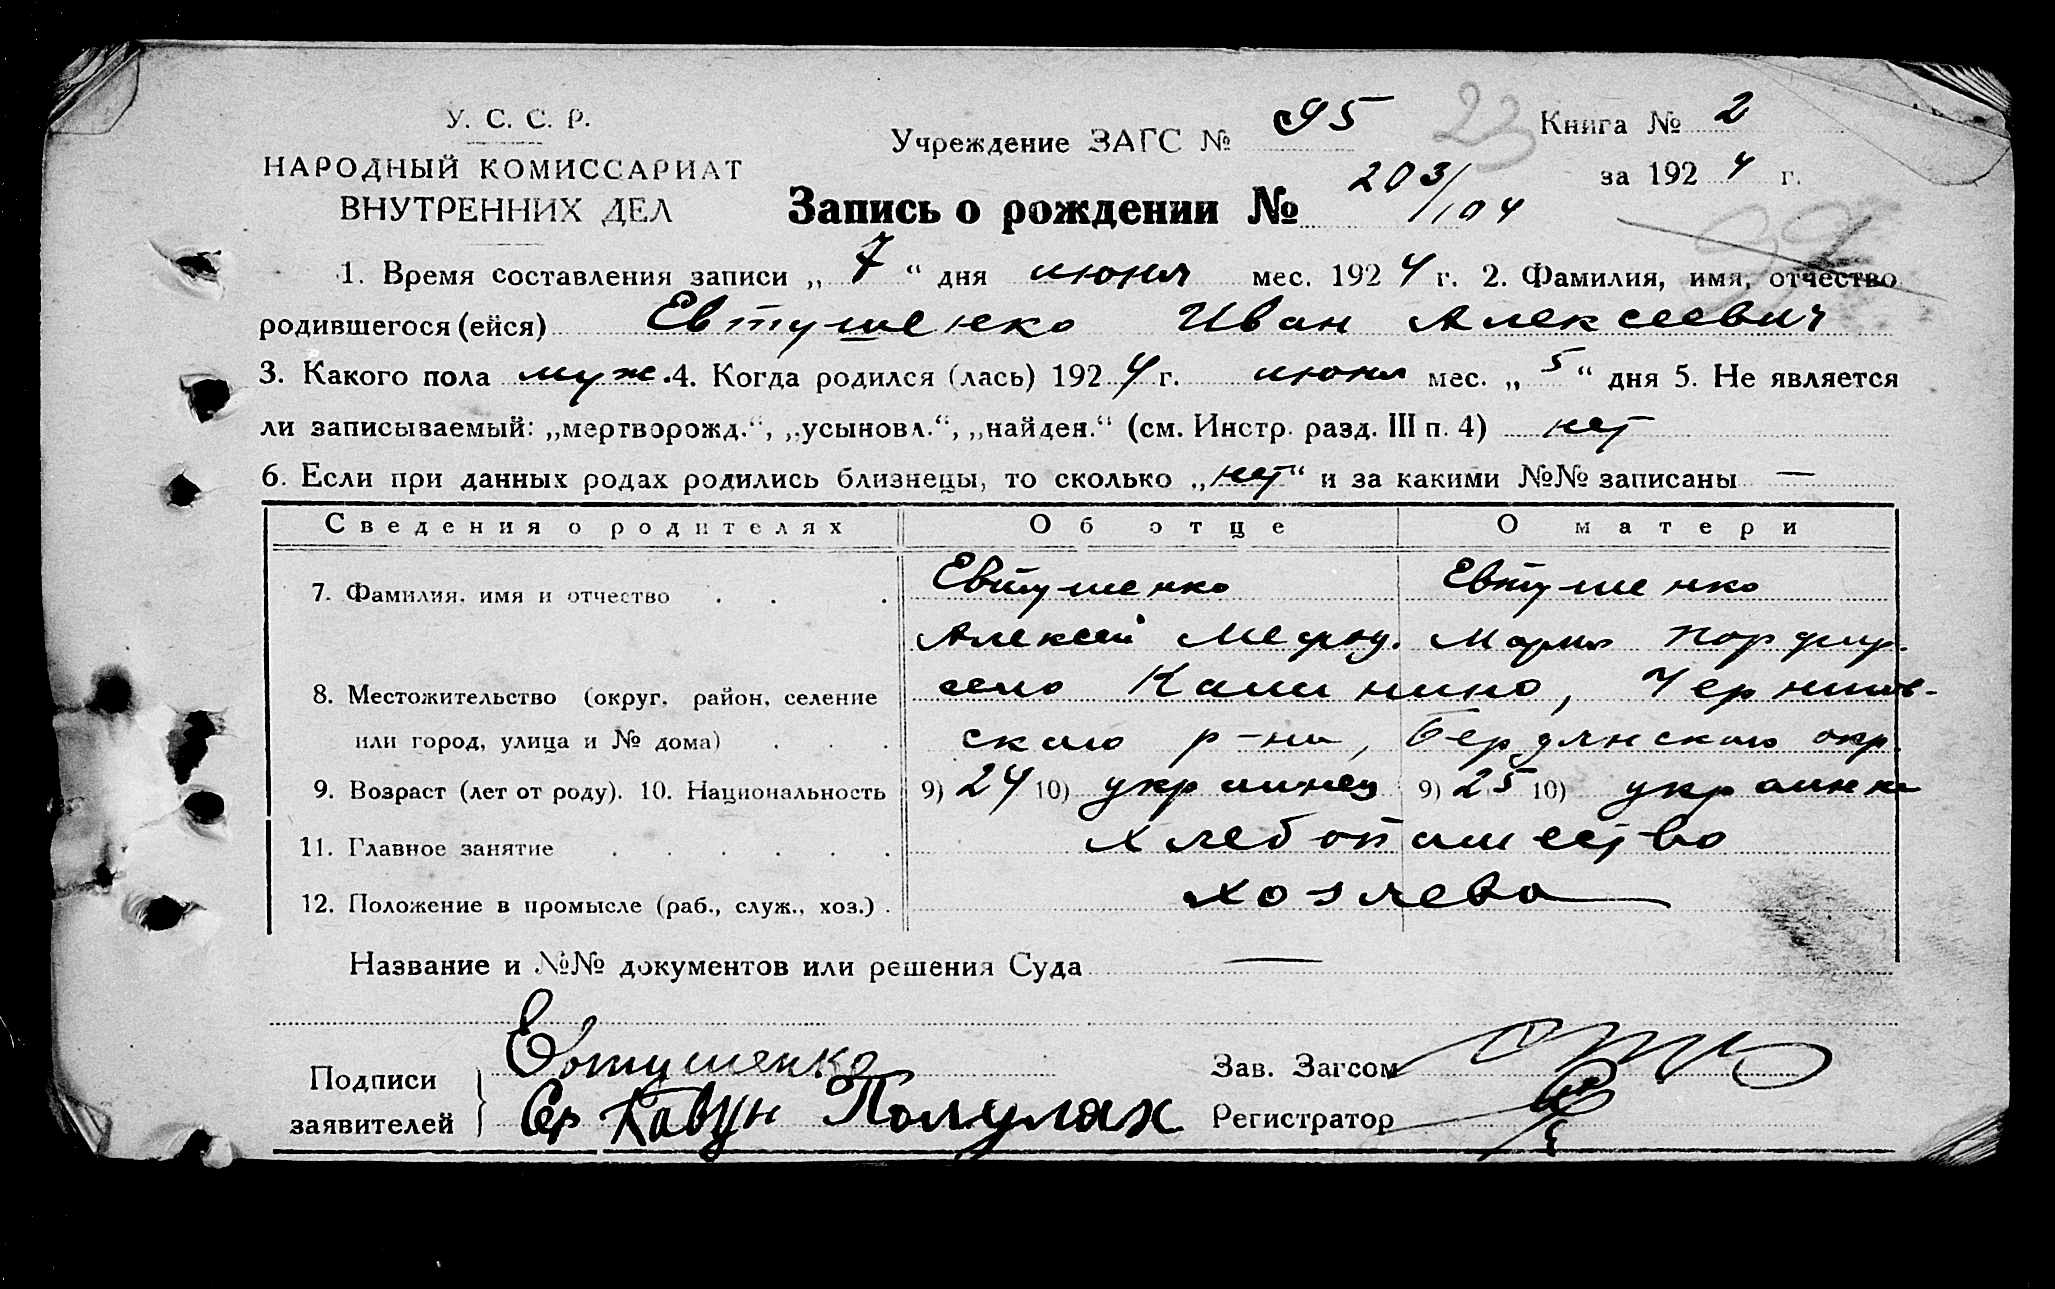 У. С. С. Р.
НАРОДНЫЙ КОМИССАРИАТ
ВНУТРЕННИХ ДЕЛ
Учреждение ЗАГС № 95
23
Книга № 2
за 1924 г.
Запись о рождении № 203/104
1. Время составления записи „ 7 “ дня июня мес. 1924 г. 2. Фамилия, имя, отчество
родившегося (ейся) Евтушенко Иван Алексеевич
3. Какого пола муж. 4. Когда родился (лась) 1924 г. июня мес. „ 5 “ дня 5. Не является
ли записываемый: „мертворожд.“, „усыновл.“, „найден.“ (см. Инстр. разд. III п. 4) нет
6. Если при данных родах родились близнецы, то сколько „нет“ и за какими №№ записаны —
Сведения о родителях Об отце О матери
7. Фамилия, имя и отчество . . . Евтушенко Евтушенко
Алексей Мефод. Мария Порфир.
8. Местожительство (округ, район, селение село Калинино, Чернигов-
или город, улица и № дома) . . . ского р-на, Бердянского окр.
9. Возраст (лет от роду). 10. Национальность 9) 24 10) украинец 9) 25 10) украинка
11. Главное занятие . . . . . . хлебопашество
12. Положение в промысле (раб., служ., хоз.) . хозяева
Название и №№ документов или решения Суда —
Подписи
заявителей
Евтушенко
Сер Кавун Полулях
Зав. Загсом
Регистратор